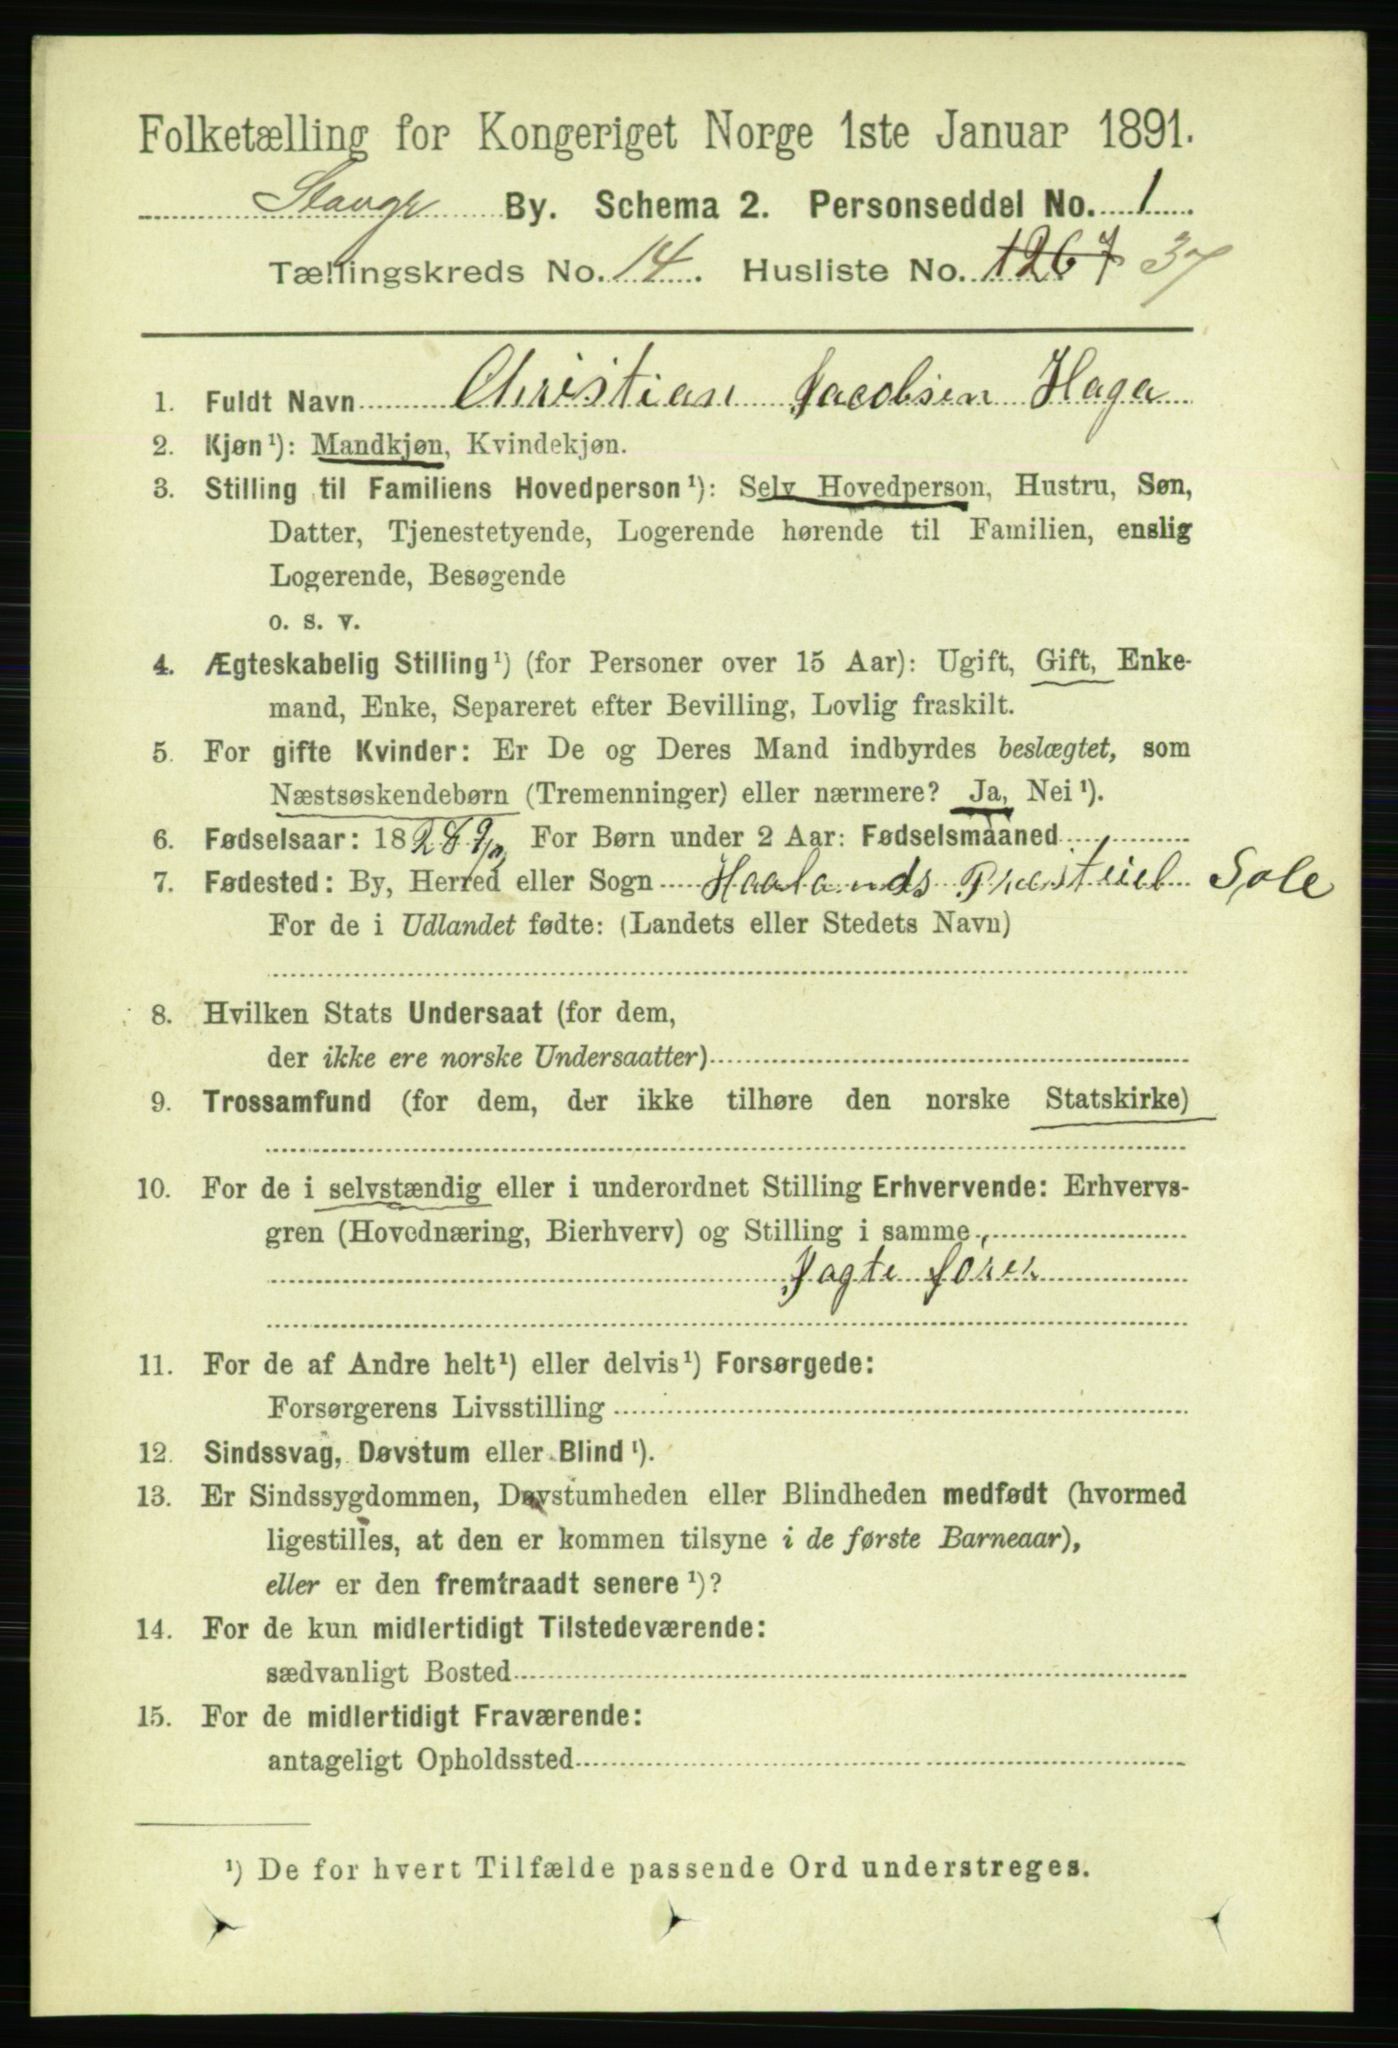 Folketælling for Kongeriget Norge 1ste Januar 1891.
Stavgr By. Schema 2. Personseddel No. 1
Tællingskreds No. 14. Husliste No. 1267 37
1. Fuldt Navn Christian Jacobsen Haga
2. Kjøn¹): Mandkjøn, Kvindekjøn.
3. Stilling til Familiens Hovedperson¹): Selv Hovedperson, Hustru, Søn,
Datter, Tjenestetyende, Logerende hørende til Familien, enslig
Logerende, Besøgende
o. s. v.
4. Ægteskabelig Stilling¹) (for Personer over 15 Aar): Ugift, Gift, Enke-
mand, Enke, Separeret efter Bevilling, Lovlig fraskilt.
5. For gifte Kvinder: Er De og Deres Mand indbyrdes beslægtet, som
Næstsøskendebørn (Tremenninger) eller nærmere? Ja, Nei¹).
6. Fødselsaar: 1828 For Børn under 2 Aar: Fødselsmaaned
7. Fødested: By, Herred eller Sogn Haalands Præsteieb Sole
For de i Udlandet fødte: (Landets eller Stedets Navn)
8. Hvilken Stats Undersaat (for dem,
der ikke ere norske Undersaatter)
9. Trossamfund (for dem, der ikke tilhøre den norske Statskirke)
10. For de i selvstændig eller i underordnet Stilling Erhvervende: Erhvervs-
gren (Hovednæring, Bierhverv) og Stilling i samme
Jagte förer
11. For de af Andre helt¹) eller delvis¹) Forsørgede:
Forsørgerens Livsstilling
12. Sindssvag, Døvstum eller Blind¹).
13. Er Sindssygdommen, Døvstumheden eller Blindheden medfødt (hvormed
ligestilles, at den er kommen tilsyne i de første Barneaar),
eller er den fremtraadt senere¹)?
14. For de kun midlertidigt Tilstedeværende:
sædvanligt Bosted
15. For de midlertidigt Fraværende:
antageligt Opholdssted
¹) De for hvert Tilfælde passende Ord understreges.